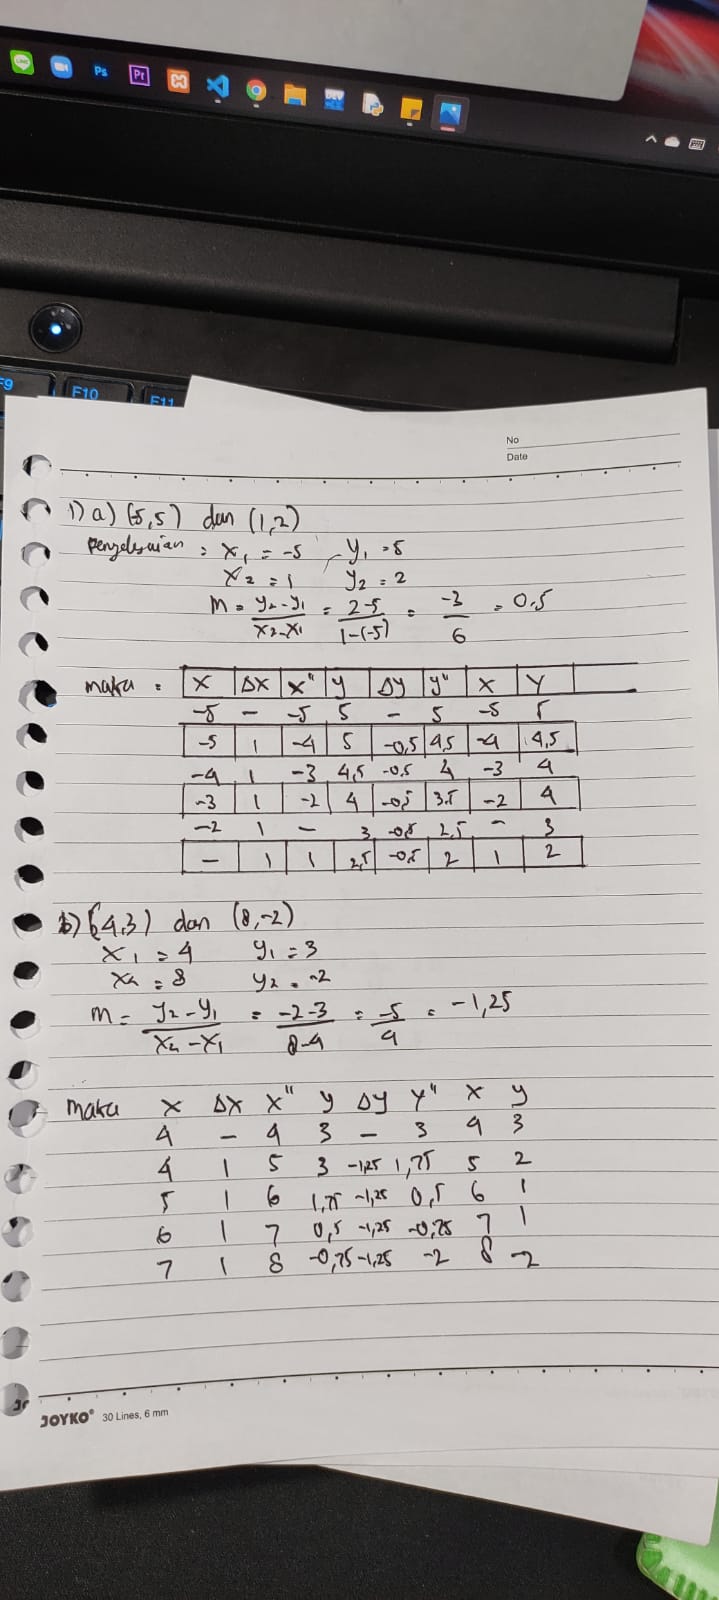 Ps Pr DEV
F9 F10 F11
No
Date
1) a) (-5,5) dan (1,2)
Penyelesaian : x₁ = -5 , y₁ = 5
x₂ = 1 y₂ = 2
m = y₂-y₁/x₂-x₁ = 2-5/1-(-5) = -3/6 = 0.5
maka : x Δx x" y Δy y" x y
-5 - -5 5 - 5 -5 5
-5 1 -4 5 -0,5 4,5 -4 4,5
-4 1 -3 4,5 -0,5 4 -3 4
-3 1 -2 4 -0,5 3.5 -2 4
-2 1 - 3 -0,5 2,5 - 3
- 1 1 2,5 -0,5 2 1 2
b) (4,3) dan (8,-2)
x₁ = 4 y₁ = 3
x₂ = 8 y₂ = -2
m = y₂-y₁/x₂-x₁ = -2-3/8-4 = -5/4 = -1,25
maka x Δx x" y Δy y" x y
4 - 4 3 - 3 4 3
4 1 5 3 -1,25 1,75 5 2
5 1 6 1,75 -1,25 0,5 6 1
6 1 7 0,5 -1,25 -0,75 7 1
7 1 8 -0,75 -1,25 -2 8 -2
JOYKO® 30 Lines, 6 mm